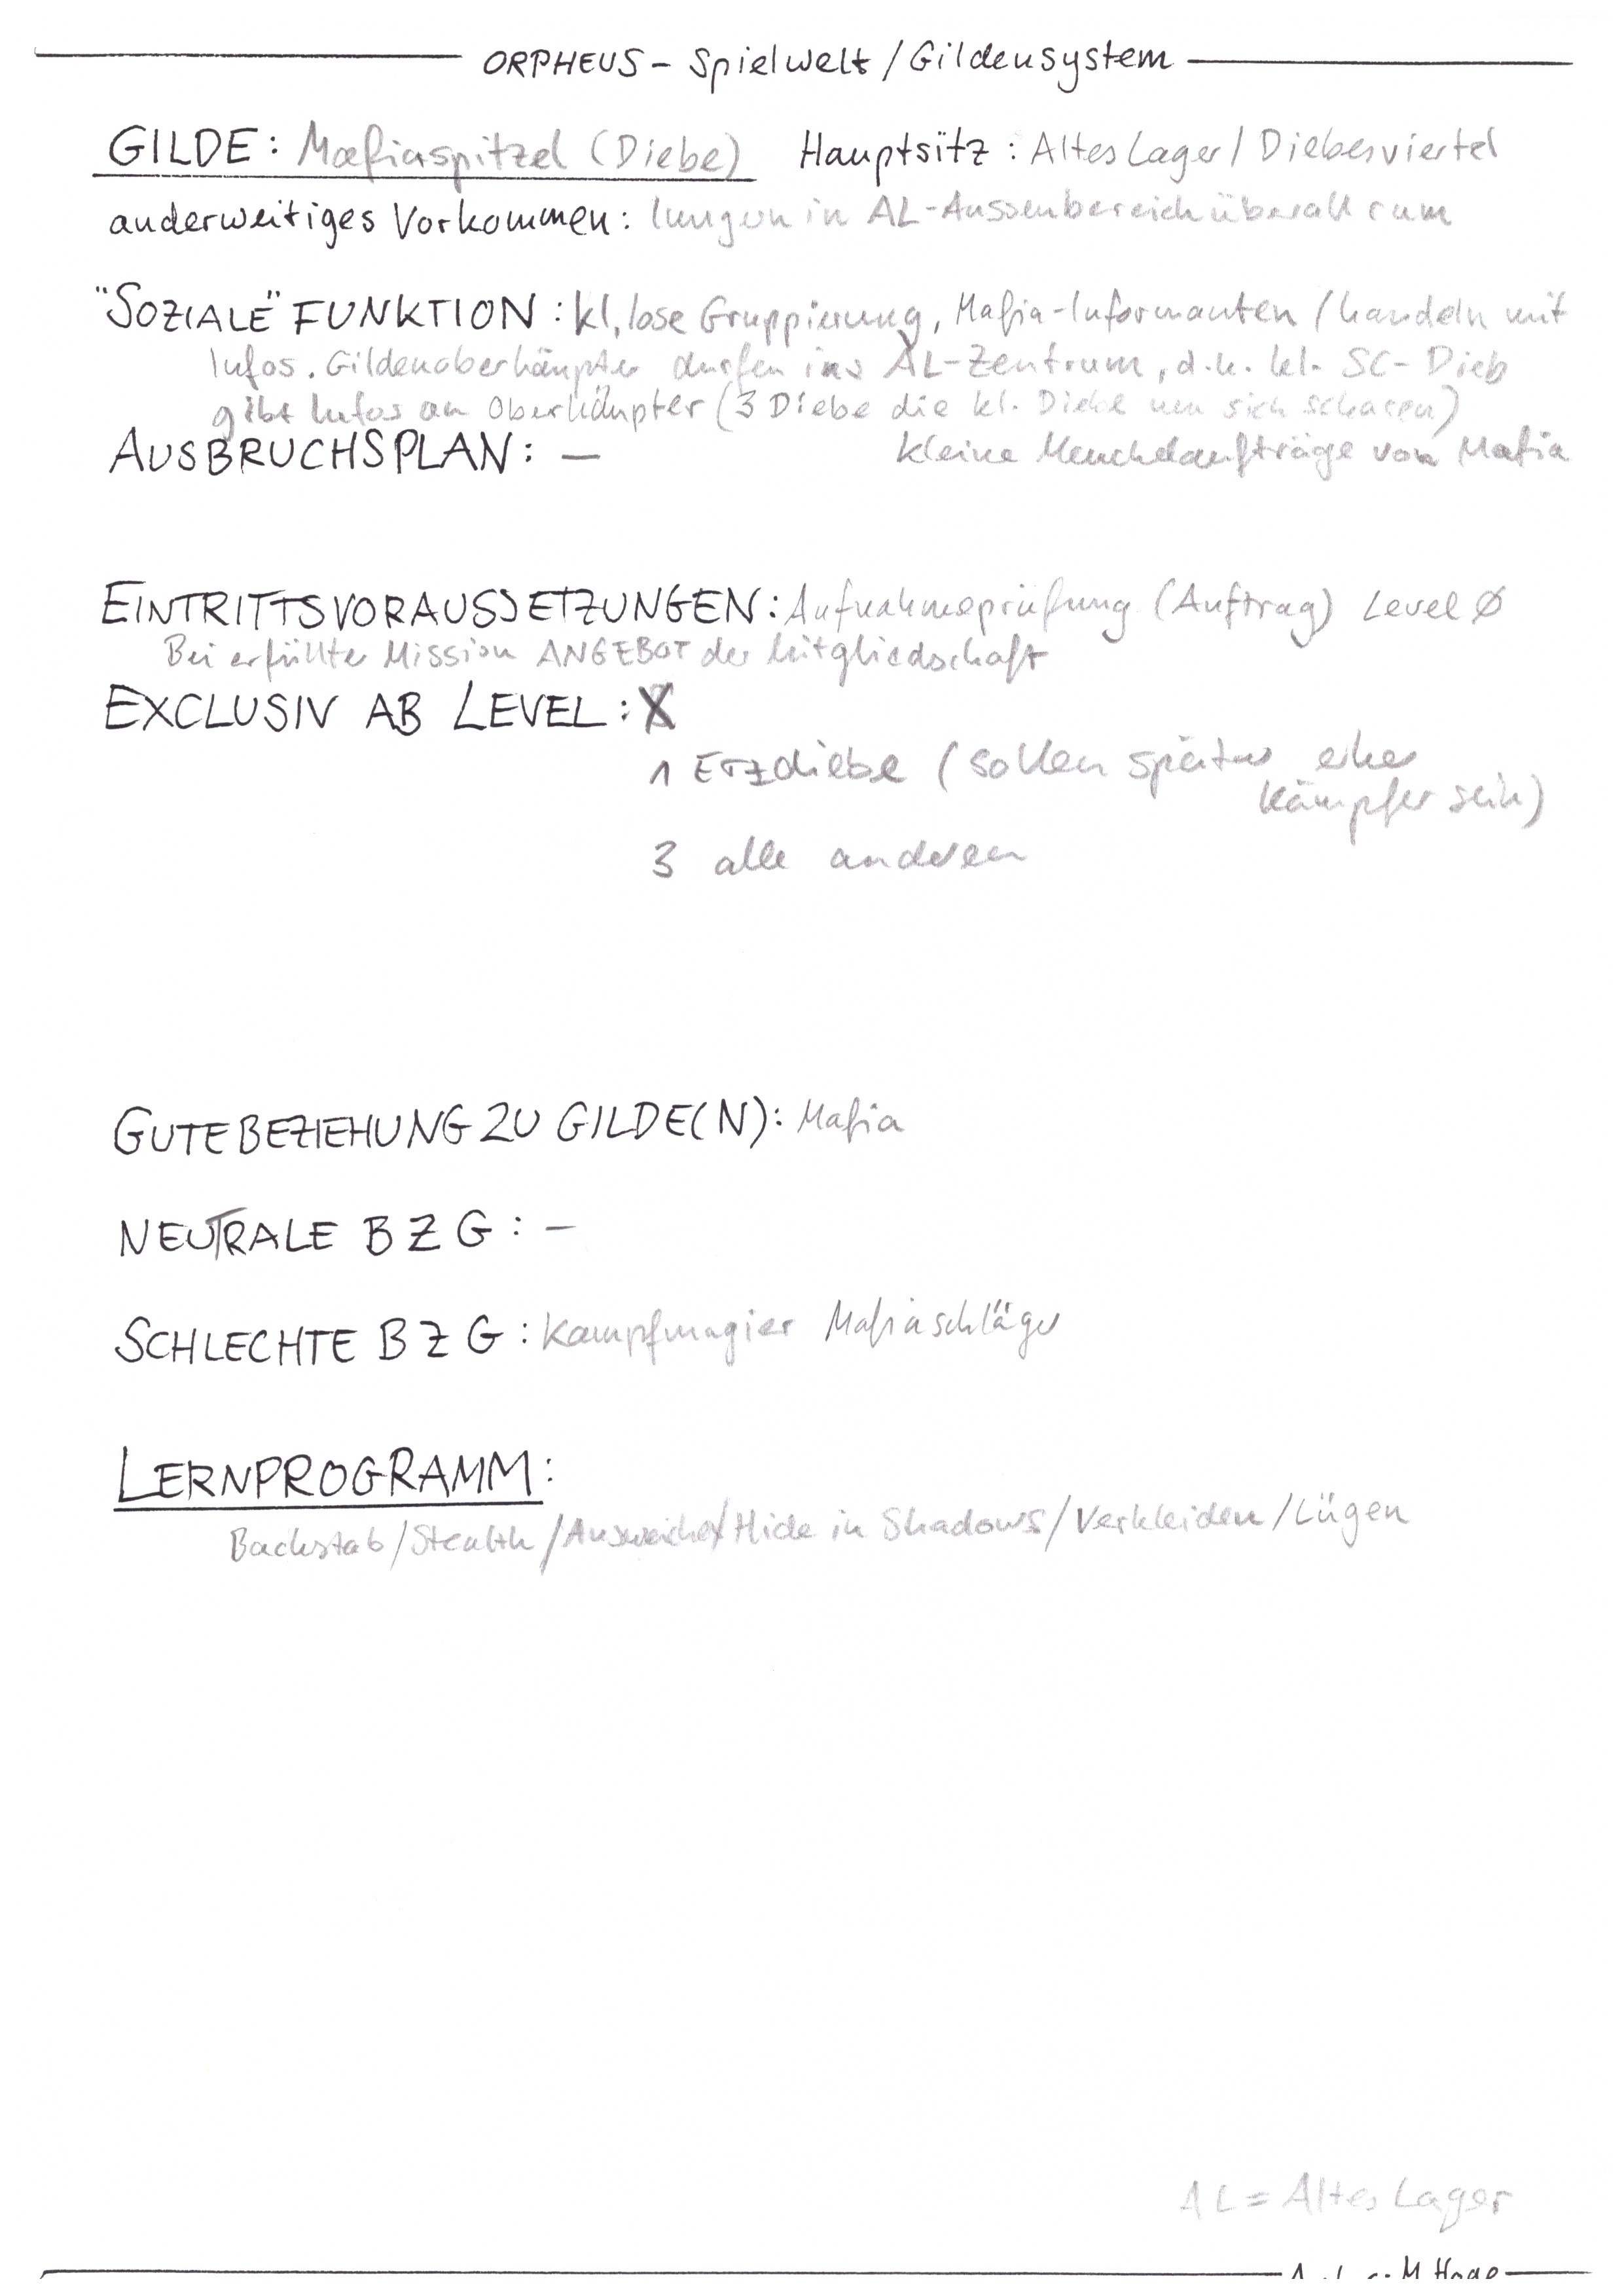 ORPHEUS - Spielwelt / Gildensystem
GILDE: Mafiaspitzel (Diebe) Hauptsitz: Altes Lager / Diebesviertel
anderweitiges Vorkommen: lungern in AL-Aussenbereich überall rum
"SOZIALE" FUNKTION: kl, lose Gruppierung, Mafia-Informanten / handeln mit
Infos. Gildenoberhäupter dürfen ins AL-Zentrum, d.h. kl. SC-Dieb
gibt Infos an Oberhäupter (3 Diebe die kl. Diebe um sich scharen)
AUSBRUCHSPLAN: — kleine Meuchelaufträge von Mafia
EINTRITTSVORAUSSETZUNGEN: Aufnahmeprüfung (Auftrag) Level Ø
Bei erfüllter Mission ANGEBOT der Mitgliedschaft
EXCLUSIV AB LEVEL: X
1 Erzdiebe (sollen später eher
Kämpfer sein)
3 alle anderen
GUTE BEZIEHUNG ZU GILDE(N): Mafia
NEUTRALE BZG: —
SCHLECHTE BZG: Kampfmagier Mafiaschläger
LERNPROGRAMM:
Backstab / Stealth / Ausweichen / Hide in Shadows / Verkleiden / Lügen
AL = Altes Lager
M. Hoge